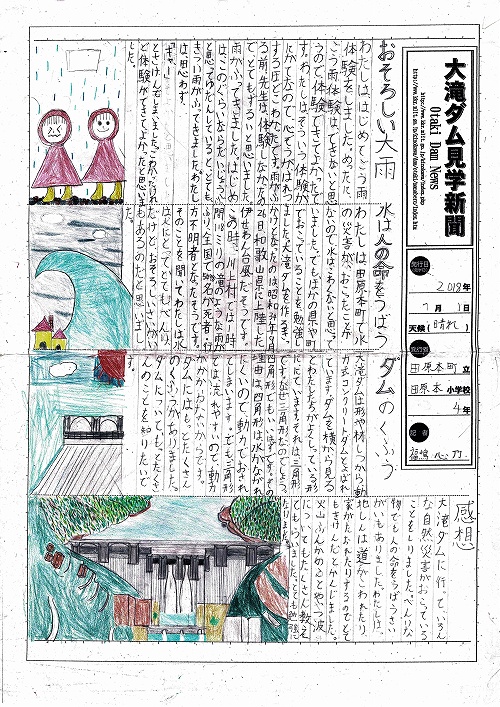 大滝ダム見学新聞
Otaki Dam News
発行日
2018年
7月1日
天候(晴れ)
発行者
田原本町立
田原本小学校
4年
記者
おそろしい大雨
わたしは、はじめてごう雨
体験をしました。めったに、
ごう雨体験はできないと思
うので、体験できてよかったで
す。わたしは、そういう体験が
にがてなので、心ぞうがはれつ
するほどこわかったです。雨がふ
る前、先生は、体験しなかったの
でとてもずるいと思いました。
雨がふってきました。はじめ
はこのぐらいならだいじょうぶ
と思ってゆだんしていると、とても
きつい雨がふってきました。わたし
は思わず、
「ギャー」
とさけんでしまいました。こわかったけれ
ど体験ができてよかったと思いま
した。
水は人の命をうばう
わたしは、田原本町で水
の災害が、おこったことが
ないので水はこわくないと思って
いました。でもほかの県や町
でおこっていることを勉強し
ました。大滝ダムを作るきっ
かけとなったのは昭和34年9月
26日、和歌山県に上陸した
伊せわん台風だそうです。
この時、川上村では一時
間118ミリの滝のような雨が
ふり、全国で
方不明者となったそうです。
そのことを聞いてわたしは、水
は人にとってとてもべんり、
だけど、おそろしいさいがい
もあるのだと思いまし
た。
ダムのくふう
大滝ダムは形や材しつから動
力式コンクリートダムとよばれ
ています。ダムを横から見る
とわたしたちがよくしっている形
ににています。それは、三角形
です。なぜ三角形なのでしょう。
四角形でもいいはずです。その
理由は、四角形は水がながれ
にくいので、動力でおされ
てしまいます。でも三角形
では流れやすいので動力
がかからないからです。
ダムにはもっとたくさん
のくふうがありました。
ダムについてもっとたくさ
んのことを知りたいで
す。
感想
大滝ダムに行って、いろん
な自然災害がおこっている
ことをしりました。べんりな
物でも人の命をうばうさい
がいもありました。わたしは、
地しんは道がこわれたり、
家がたおれたりするのでとて
もきけんだとかんじました。
火山ふんかのことやつ波
についてもたくさん教え